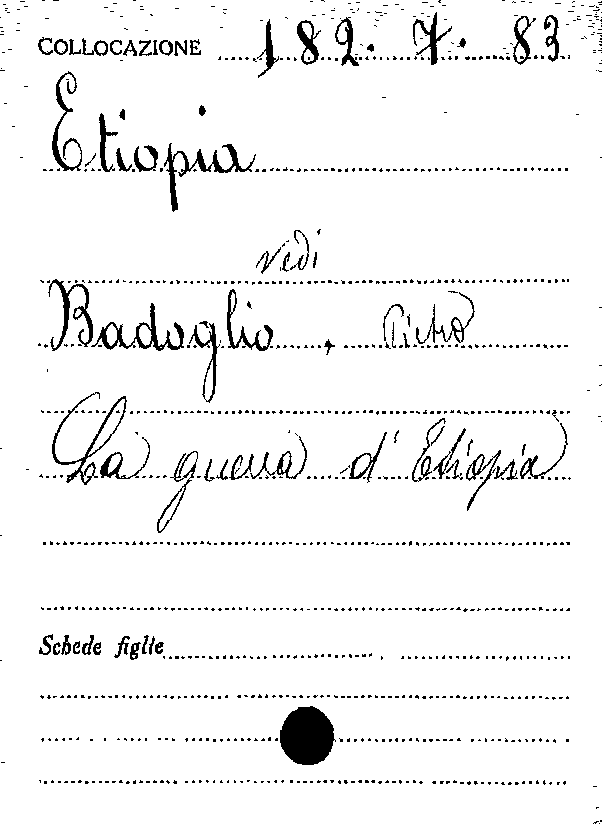 COLLOCAZIONE 182. 7. 83
Etiopia
vedi
Badoglio, Pietro
La guerra d'Etiopia
Schede figlie